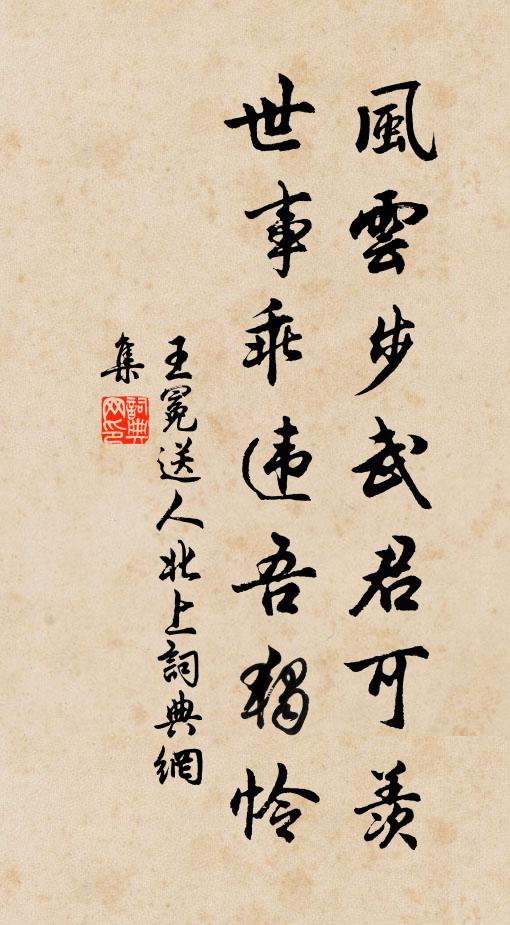 風雲步武君可羨
世事乖違吾獨怜
王冕送人北上詞典網
集
詞典網印